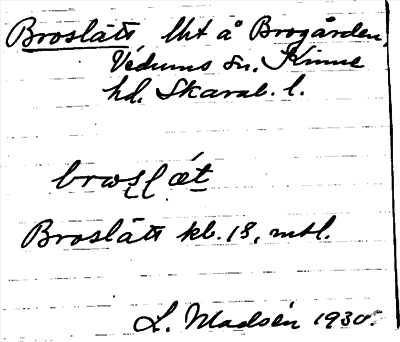 Broslätt lht å Brogården,
Vedums sn. Kinne
hd. Skarab. l.
brosl æt
Broslätt kb. 18, mtl.
L. Madsén 1930.